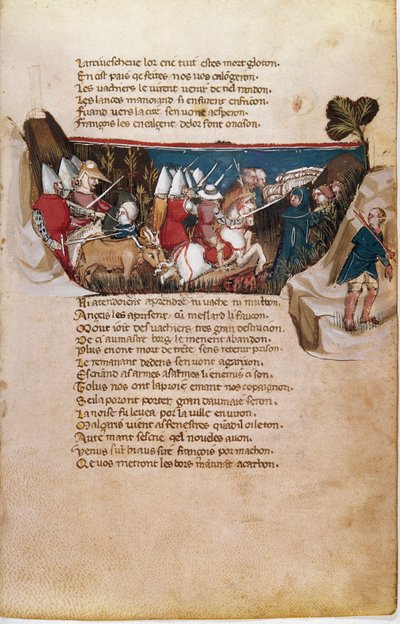 Larcivescheve lor crie tuit estes mort gloton.
En cist pais qe feites nos vos calongeron.
Les vachiers le virent venir de tid randon.
Les lances manoiand si enfuient enfricon.
Fuiand vers la cite sen vont asperon.
François les encalçent delor font oncison.
Ni atendoient aprendre ni vache ni multon.
Ançeis les aprisent cū meslard li faucon.
Mout i oit des vachiers tres gran destrucion.
De ci au maistre borg le menent abandon.
Plus en ont mort de trête sens retenir prison.
Le remanant dedens sen vont agarixon.
Escriand as armes as armes li enemis ci son.
Tolus nos ont la proie e mant nos copagnon.
Seila poront porter gran daumaie seron.
La noise fu levea por la ville en viron.
Malçaris vient as fenestres quādil oi le ton.
Aute mant sescrie qel novelles avon.
Venus sūt biaus sire françois por machon.
Qe vos metront les bors